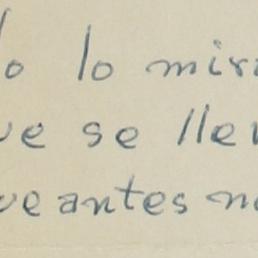 lo lo mira
ue se llev
ue antes no